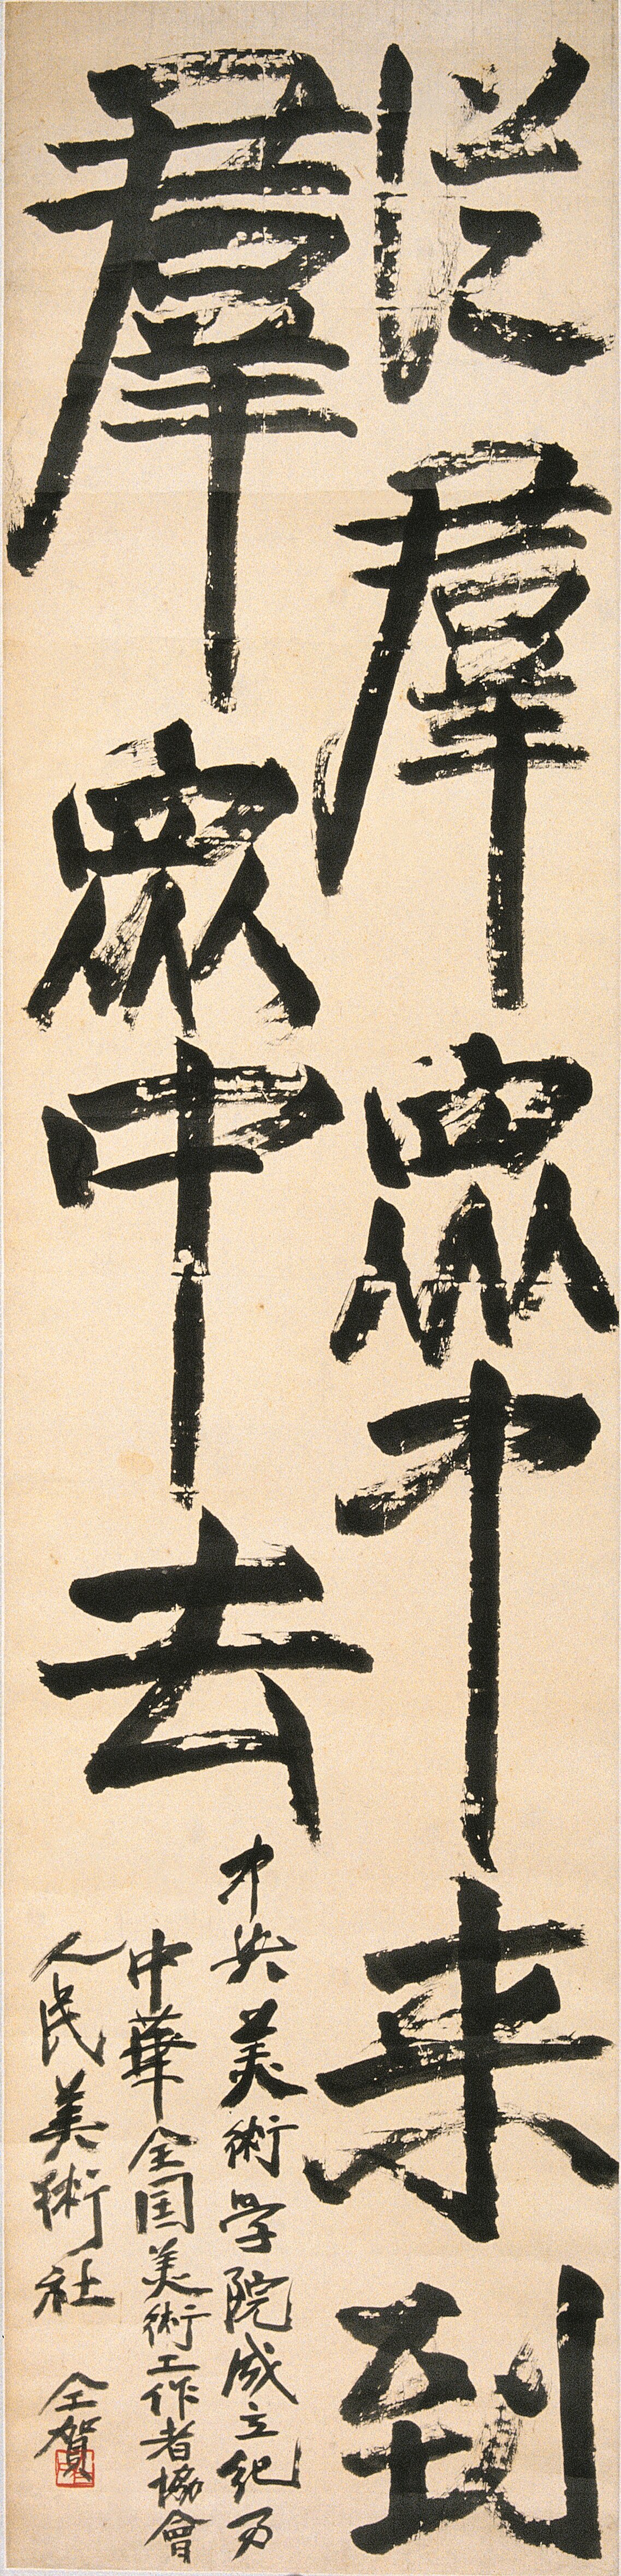 從羣眾中来到
羣眾中去
中央美術学院成立紀念
中華全国美術工作者協會
人民美術社 仝賀